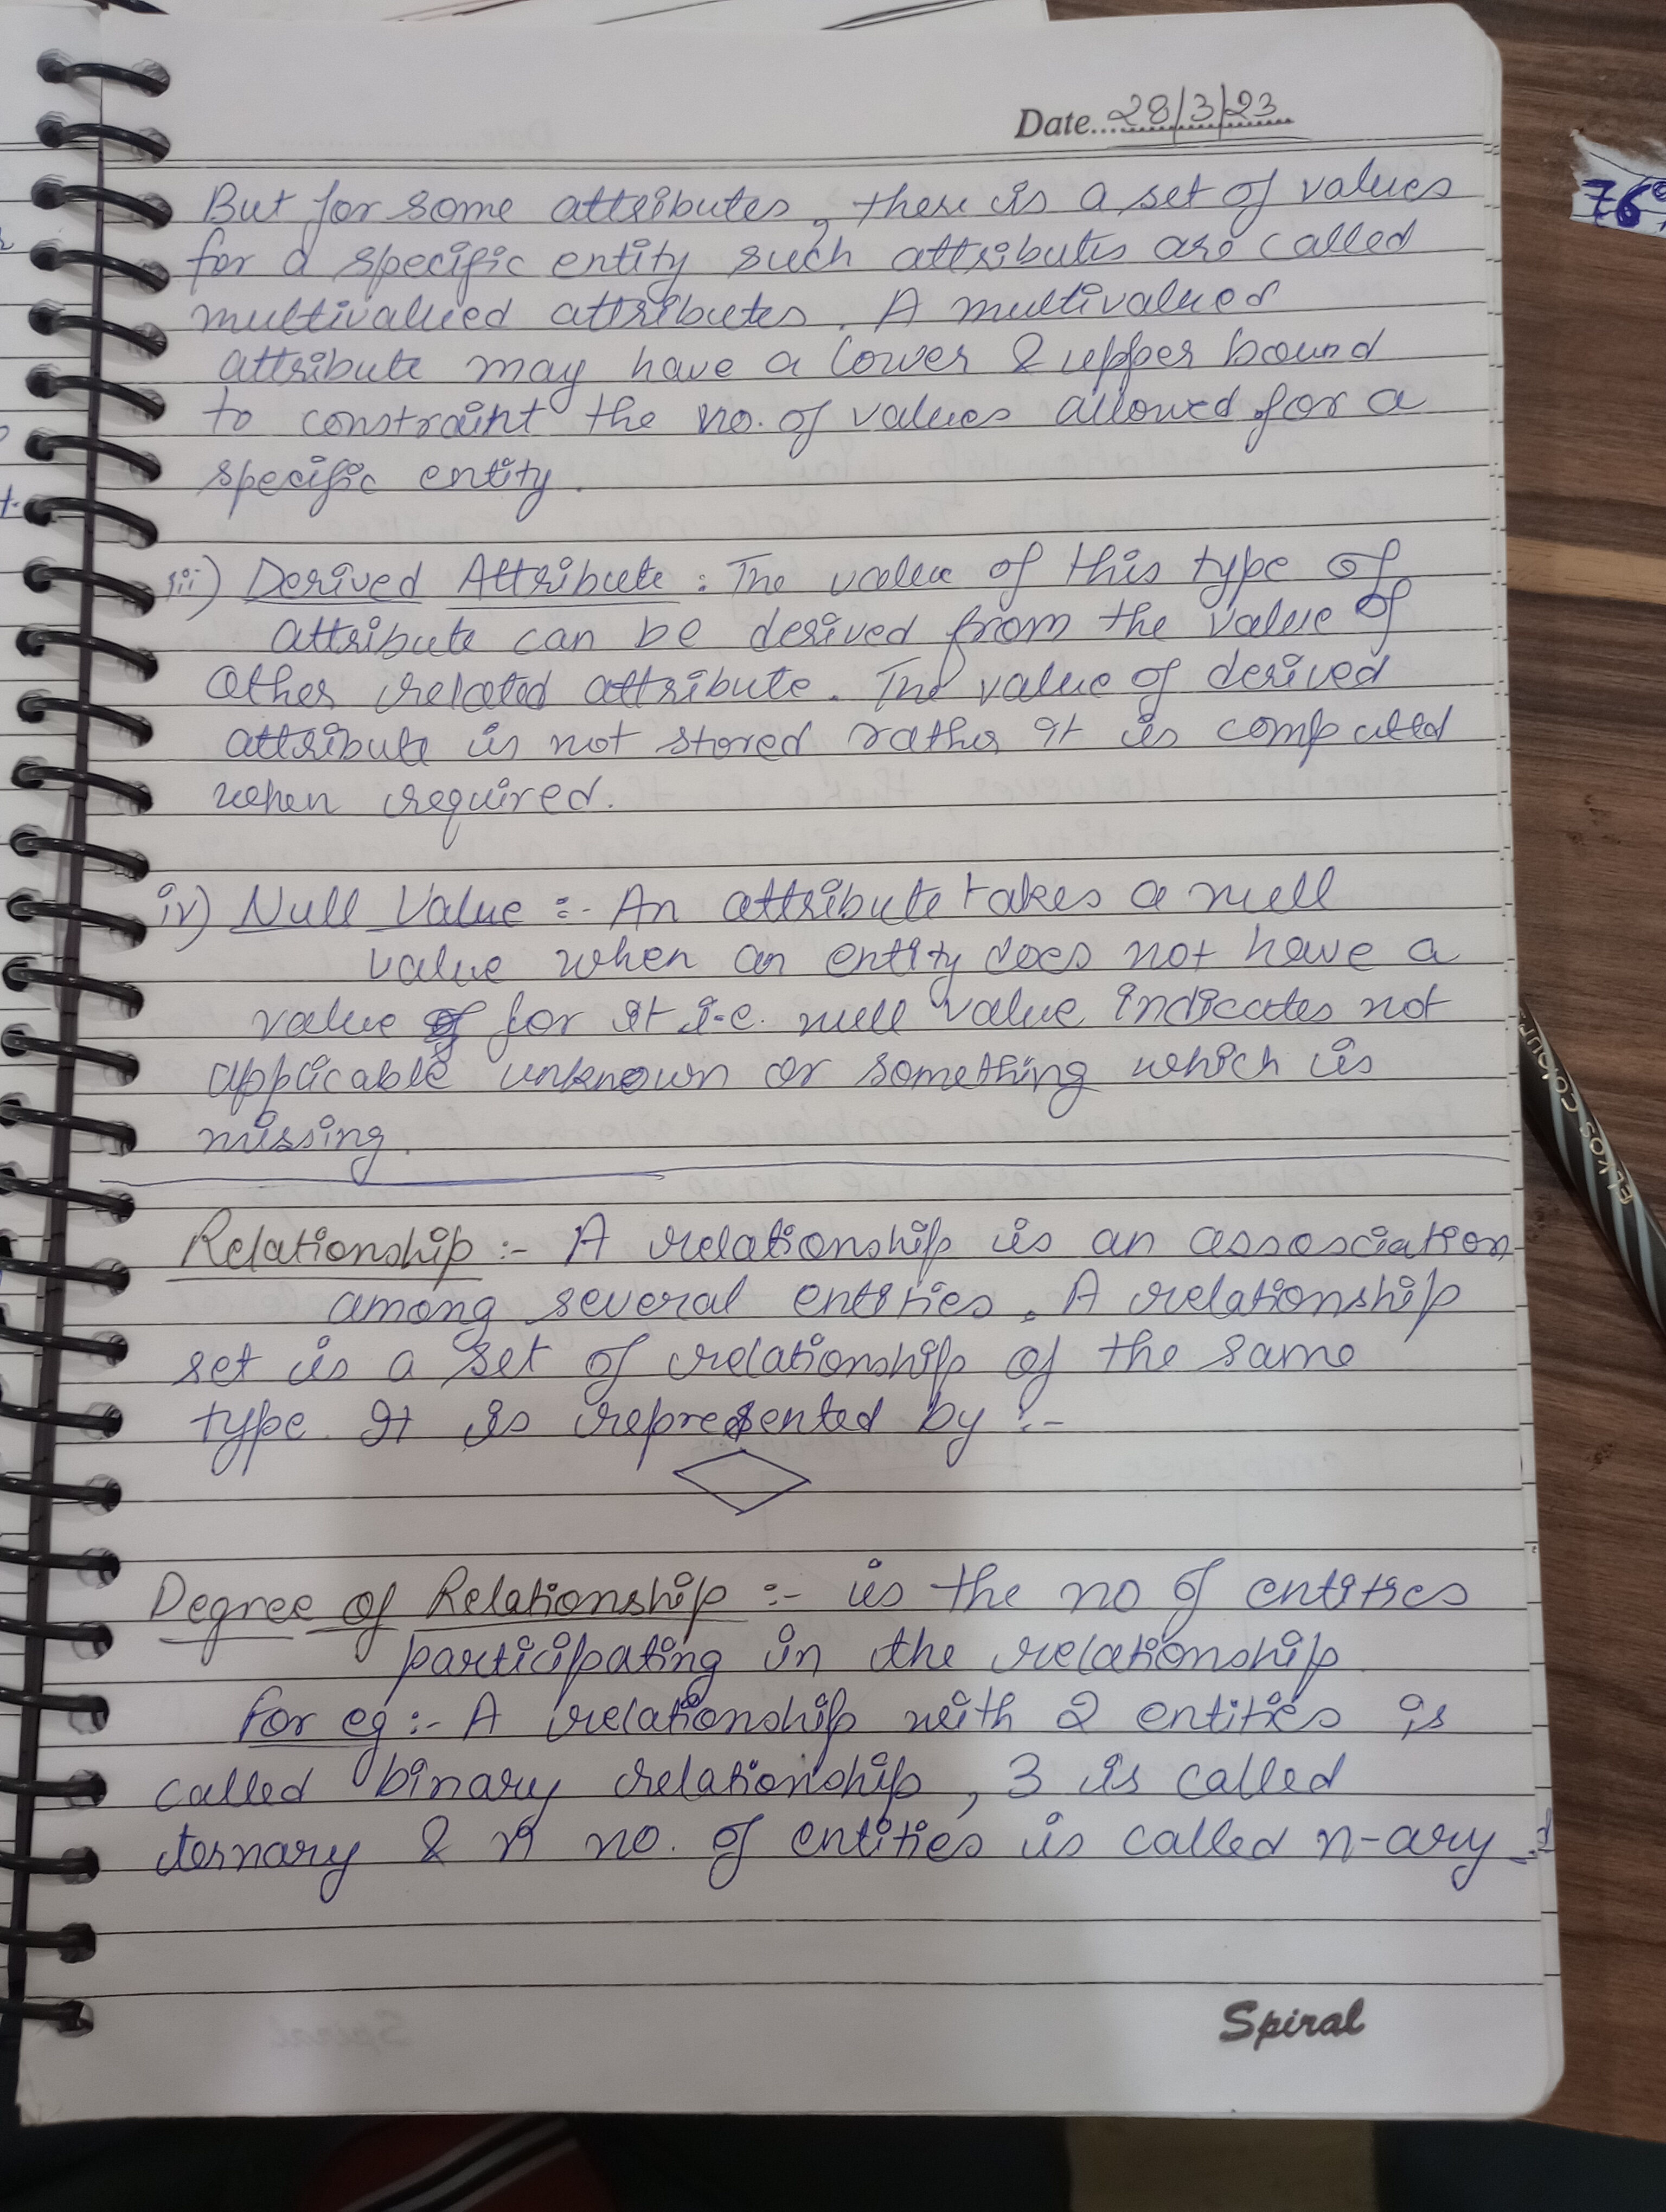 Date...28/3/23
But for some attributes, there is a set of values
for a specific entity such attributes are called
multivalued attributes. A multivalued
attribute may have a lower & upper bound
to constraint the no. of values allowed for a
specific entity.
iii) Derived Attribute : The value of this type of
attribute can be derived from the value of
other related attribute. The value of derived
attribute is not stored rather it is computed
when required.
iv) Null Value :- An attribute takes a null
value when an entity does not have a
value for it i.e. null value indicates not
applicable unknown or something which is
missing.
Relationship :- A relationship is an assosciation
among several entities. A relationship
set is a set of relationship of the same
type. It is represented by :-
Degree of Relationship :- is the no of entities
participating in the relationship
For eg :- A relationship with 2 entities is
called binary relationship, 3 is called
ternary & n no. of entities is called n-ary
Spiral
76
ELKOS COLOUR